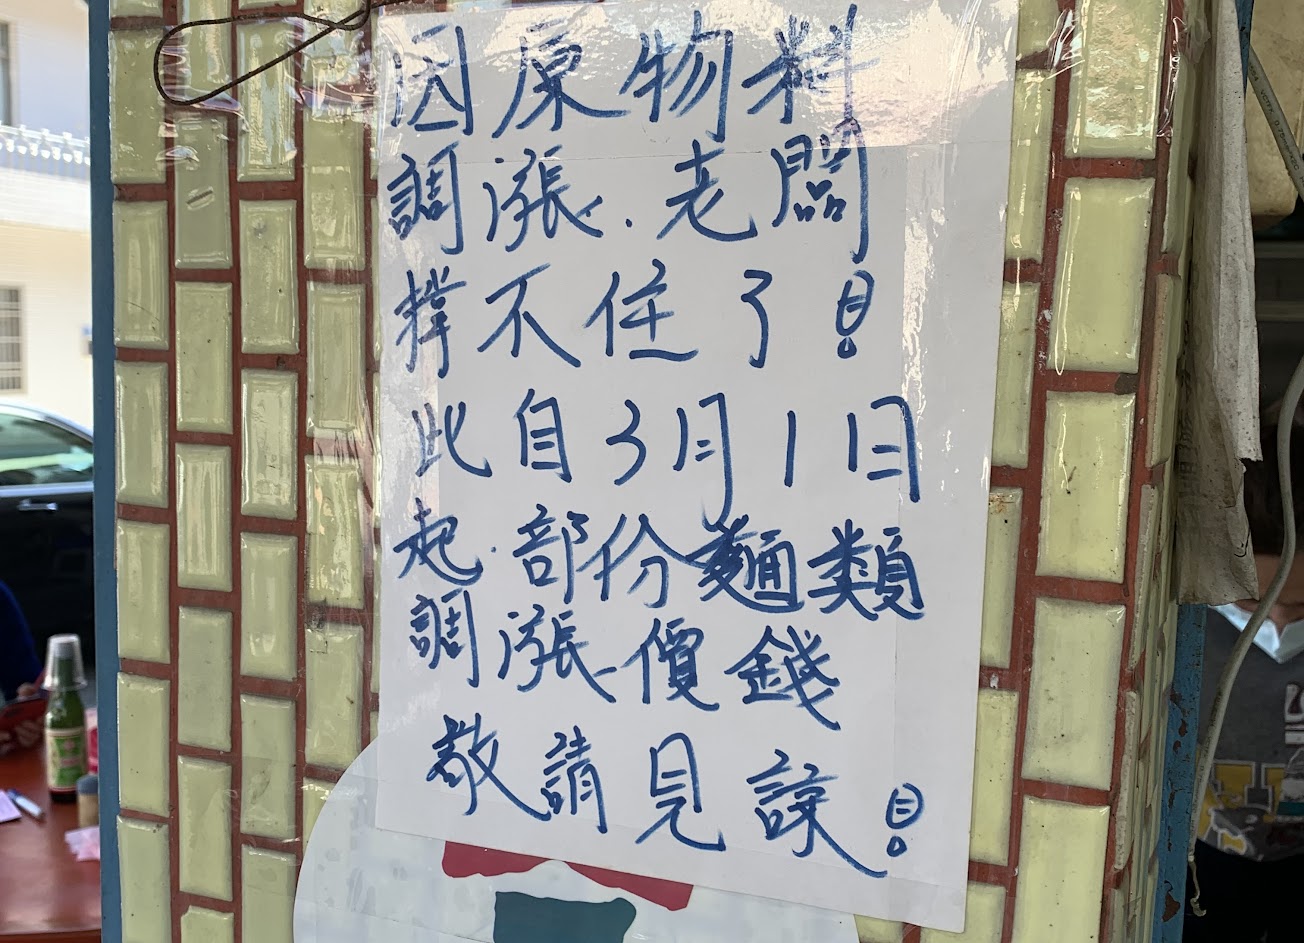 因原物料
調漲.老闆
撐不住了!
此自3月1日
起.部份麵類
調漲價錢
敬請見諒!